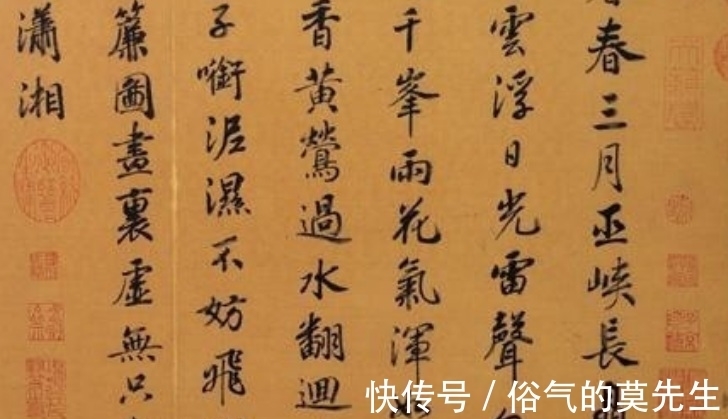 春三月巫峽長
雲浮日光雷聲
千峯雨花氣渾
香黃鶯過水翻迴
子啣泥濕不妨飛
簾圖畫裏虛無只
瀟湘
快传号 / 俗气的莫先生